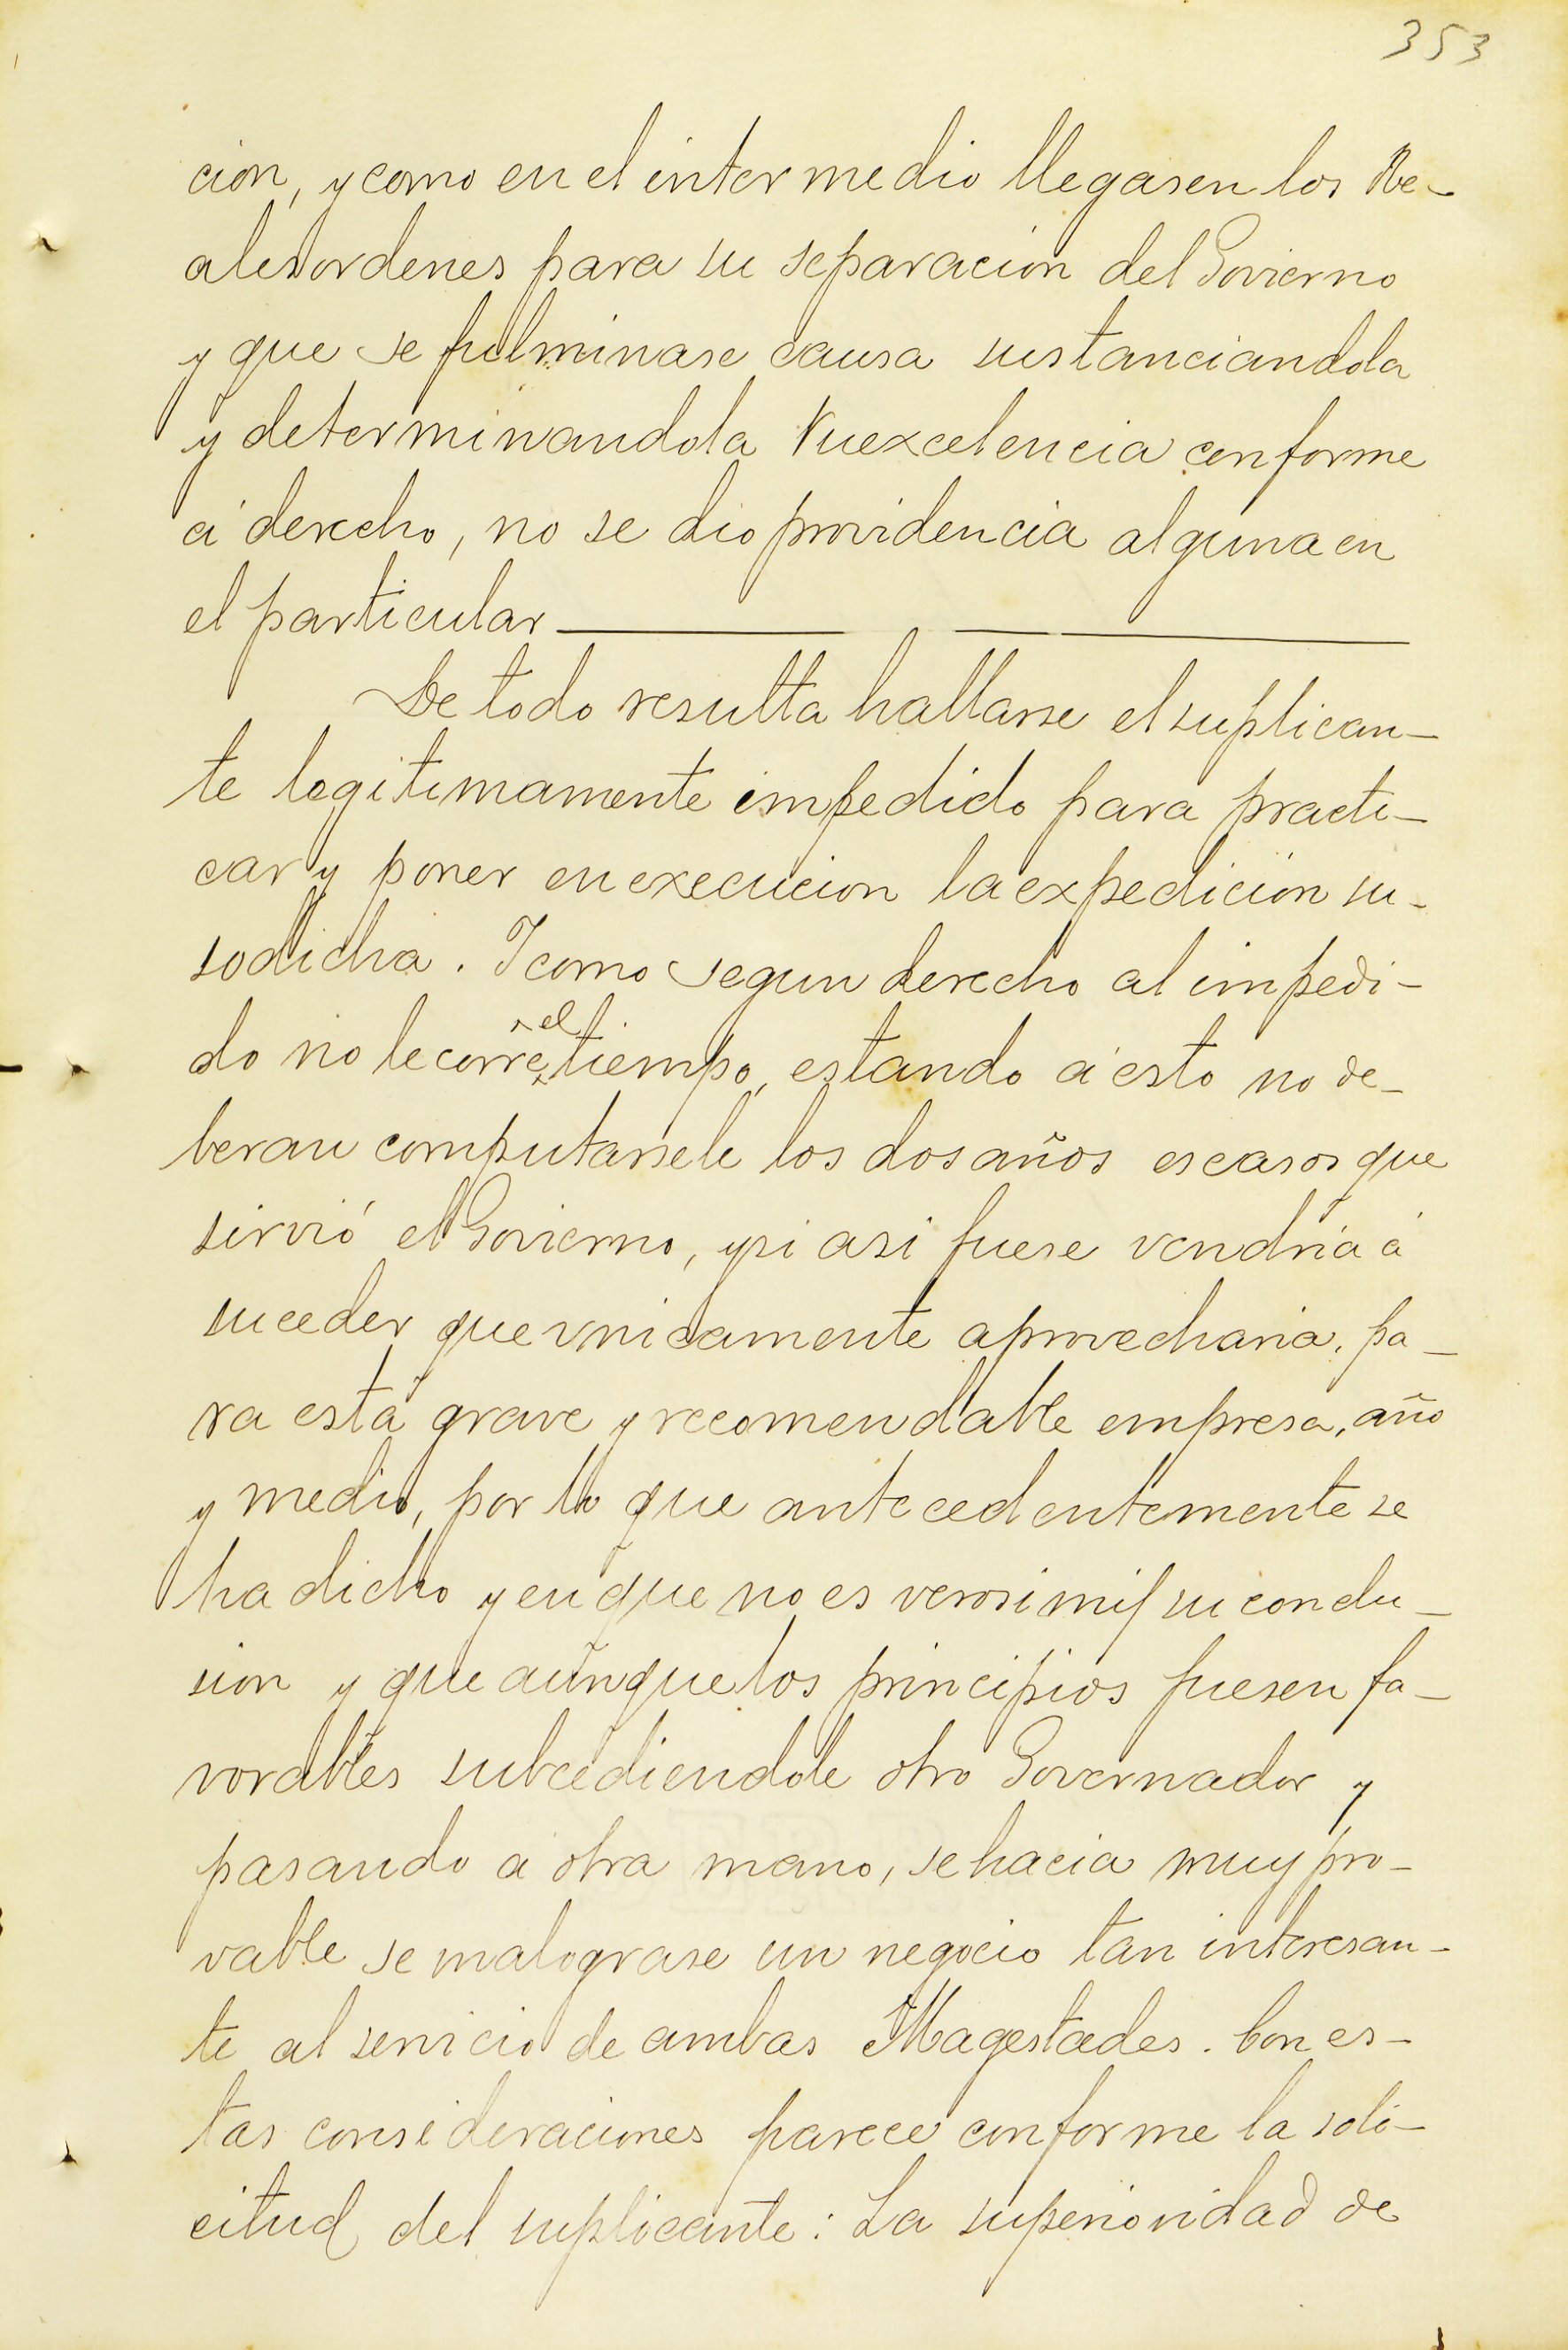 353
cion, y como en el intermedio llegasen los Re-
ales ordenes para su separacion del Govierno
y que se fulminase causa sustanciandola
y determinandola Vuexcelencia conforme
á derecho, no se dio providencia alguna en
el particular
De todo resulta hallarse el suplican-
te legitimamente impedido para practi-
car y poner en execucion la expedición su-
sodicha. Y como segun derecho al impedi-
do no le corre el tiempo, estando á esto no de-
beran computarsele los dos años escasos que
sirvió el Govierno, y si asi fuese vendria á
suceder que vnicamente aprovecharia, pa-
ra está grave y recomendable empresa, año
y medio, por lo que antecedentemente se
ha dicho y en que no es verosimil su conclu-
sion y que aunque los principios fuesen fa-
vorables subcediendole otro Governador y
pasando á otra mano, se hacia muy pro-
vable se malograse un negocio tan interesan-
te al servicio de ambas Magestades. Con es-
tas consideraciones parece conforme la soli-
citud del suplicante: La superioridad de